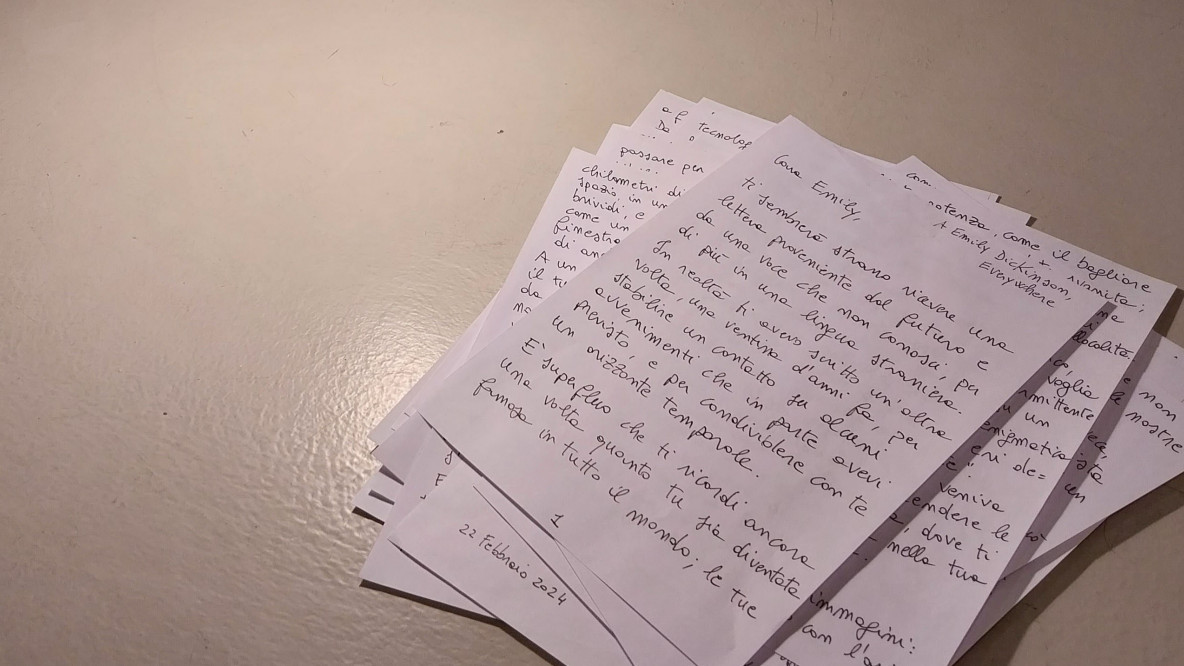 Cara Emily,
ti sembrerà strano ricevere una
lettera proveniente dal futuro e
da una voce che non conosci, per
di più in una lingua straniera.
In realtà ti avevo scritto un'altra
volta, una ventina d'anni fa, per
stabilire un contatto su alcuni
avvenimenti che in parte avevi
previsto, e per condividere con te
un orizzonte temporale.
È superfluo che ti ricordi ancora
una volta quanto tu sia diventata
famosa in tutto il mondo; le tue
1
22 Febbraio 2024
A Emily Dickinson,
Everywhere
passare per
chilometri di
spazio in un
brividi, e
come un
finestra
di an
A un
il tu
da
come il bagliore
voglia
un
veniva
dove ti
nella tua
immagini:
e non
le nostre